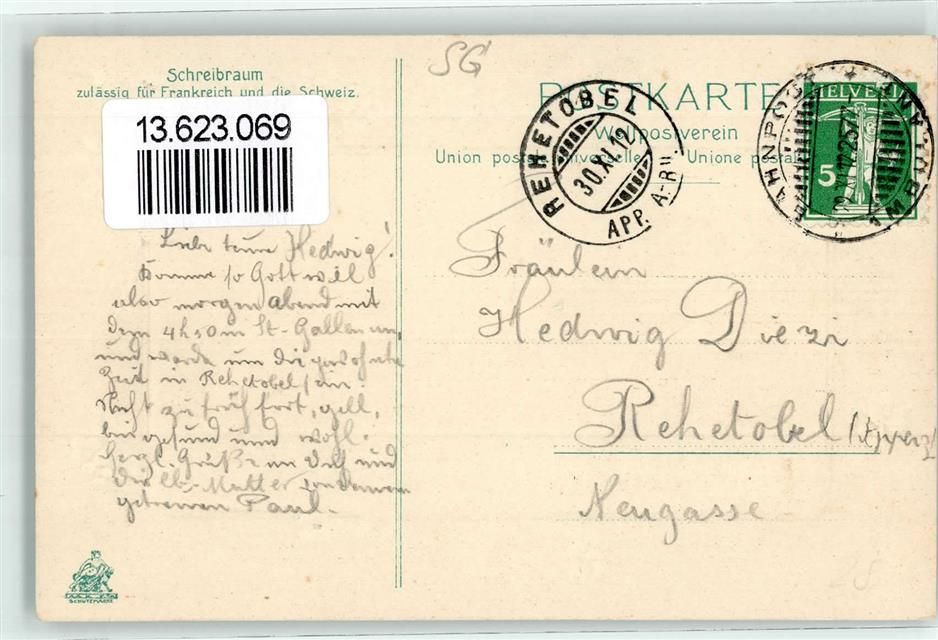 Schreibraum
zulässig für Frankreich und die Schweiz.
13.623.069
Liebe teure Hedwig!
Komme so Gott will
also morgen abend mit
dem 4h50m St-Gallen an
und werde um die gewohnte
Zeit in Rehetobel sein.
Nicht zu früh fort, gell,
bin gesund und wohl.
Herzl. Grüße an Dich und
Die lb. Mutter von deinem
getreuen Paul.
SCHUTZMARKE
SG
POSTKARTE
Weltpostverein
Union postale universelle Unione postale
REHETOBEL
30.XI.12
APP. A-RH.
HELVETIA
5
AMBULANT
BAHNPOST
Fräulein
Hedwig Diezi
Rehetobel
Neugasse